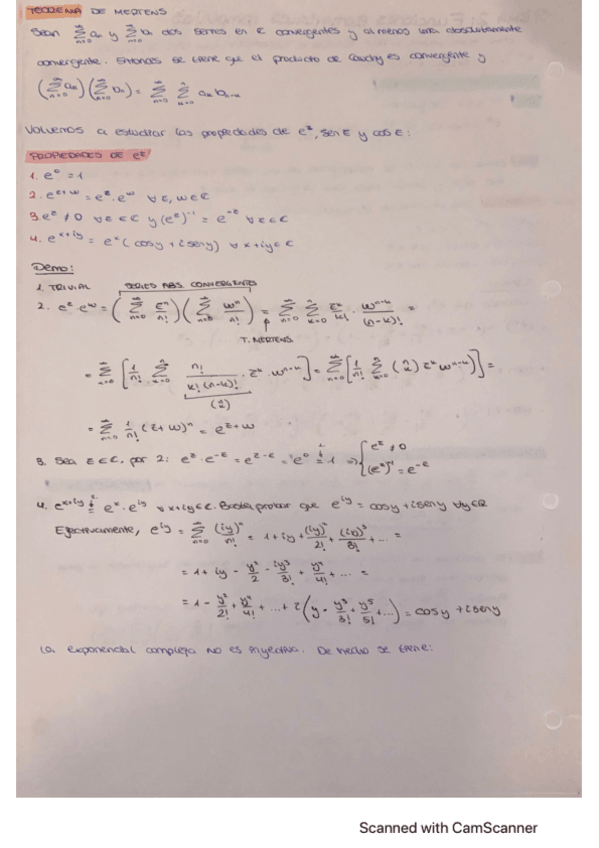 TEOREMA DE MERTENS
Sean ∑_{n=0}^∞ aₙ y ∑_{n=0}^∞ bₙ dos series en ℂ convergentes y al menos una absolutamente
convergente. Entonces se tiene que el producto de Cauchy es convergente y
(∑_{n=0}^∞ aₙ)(∑_{n=0}^∞ bₙ) = ∑_{n=0}^∞ ∑_{k=0}^n aₖ bₙ₋ₖ
Volvemos a estudiar las propiedades de e^z, sen z y cos z:
PROPIEDADES DE e^z
1. e^0 = 1
2. e^{z+w} = e^z · e^w ∀ z, w ∈ ℂ
3. e^z ≠ 0 ∀ z ∈ ℂ y (e^z)^{-1} = e^{-z} ∀ z ∈ ℂ
4. e^{x+iy} = e^x (cos y + i sen y) ∀ x+iy ∈ ℂ
Demo:
1. TRIVIAL SERIES ABS. CONVERGENTES
2. e^z e^w = (∑_{n=0}^∞ z^n/n!)(∑_{n=0}^∞ w^n/n!) = ∑_{n=0}^∞ ∑_{k=0}^n z^k/k! · w^{n-k}/(n-k)! =
T. MERTENS
= ∑_{n=0}^∞ [1/n! ∑_{k=0}^n n!/(k!(n-k)!) · z^k · w^{n-k}] = ∑_{n=0}^∞ [1/n! ∑_{k=0}^n (n k) z^k w^{n-k}] =
(n k)
= ∑_{n=0}^∞ 1/n! (z+w)^n = e^{z+w}
3. Sea z ∈ ℂ, por 2: e^z · e^{-z} = e^{z-z} = e^0 = 1 ⇒ { e^z ≠ 0
(e^z)^{-1} = e^{-z}
4. e^{x+iy} = e^x · e^{iy} ∀ x+iy ∈ ℂ. Basta probar que e^{iy} = cos y + i sen y ∀ y ∈ ℝ
Efectivamente, e^{iy} = ∑_{n=0}^∞ (iy)^n/n! = 1 + iy + (iy)²/2! + (iy)³/3! + ... =
= 1 + iy - y²/2 - iy³/3! + y⁴/4! + ... =
= 1 - y²/2! + y⁴/4! + ... + i (y - y³/3! + y⁵/5! + ...) = cos y + i sen y
La exponencial compleja no es inyectiva. De hecho se tiene:
Scanned with CamScanner